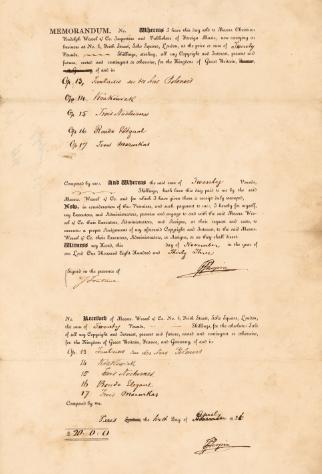 MEMORANDUM. No. Whereas I have this day sold to Messrs Christian
Rudolph Wessel & Co. Importers and Publishers of Foreign Music, now carrying on
business at No. 6, Frith Street, Soho Square, London, at the price or sum of Twenty
Pounds, Shillings, sterling, all my Copyright and Interest, present and
future, vested and contingent or otherwise, for the Kingdom of Great Britain,
of and in
Op. 13, Fantaisie sur des Airs Polonais
Op. 14. Krakowiak
Op. 15 Trois Nocturnes
Op. 16 Rondo Elégant
Op. 17 Trois Mazurkas
Composed by me. And Whereas the said sum of Twenty Pounds,
Shillings, hath been this day paid to me by the said
Messrs. Wessel & Co. and for which I have given them a receipt duly stamped,
Now, in consideration of the Premises, and such payment to me, I hereby for myself,
my Executors, and Administrators, promise and engage to and with the said Messrs. Wes-
sel & Co. their Executors, Administrators, and Assigns, at their request and costs, to
execute a proper Assignment of my aforesaid Copyright and Interest, to the said Messrs.
Wessel & Co. their Executors, Administrators, or Assigns, or as they shall direct.
Witness my Hand, this day of November in the year of
our Lord One Thousand Eight Hundred and Thirty Three
FChopin
Signed in the presence of
No. Received of Messrs. Wessel & Co. No. 6, Frith Street, Soho Square, London,
the sum of Twenty Pounds, Shillings, for the absolute Sale
of all my Copyright and Interest, present and future, vested and contingent or otherwise,
for the Kingdom of Great Britain, France, and Germany, of and in
Op. 13 Fantaisie sur des Airs Polonais
14 Krakowiak
15 Trois Nocturnes
16 Rondo Elegant
17 Trois Mazurkas
Composed by me.
Paris the Day of
£ 20.0.0
FChopin